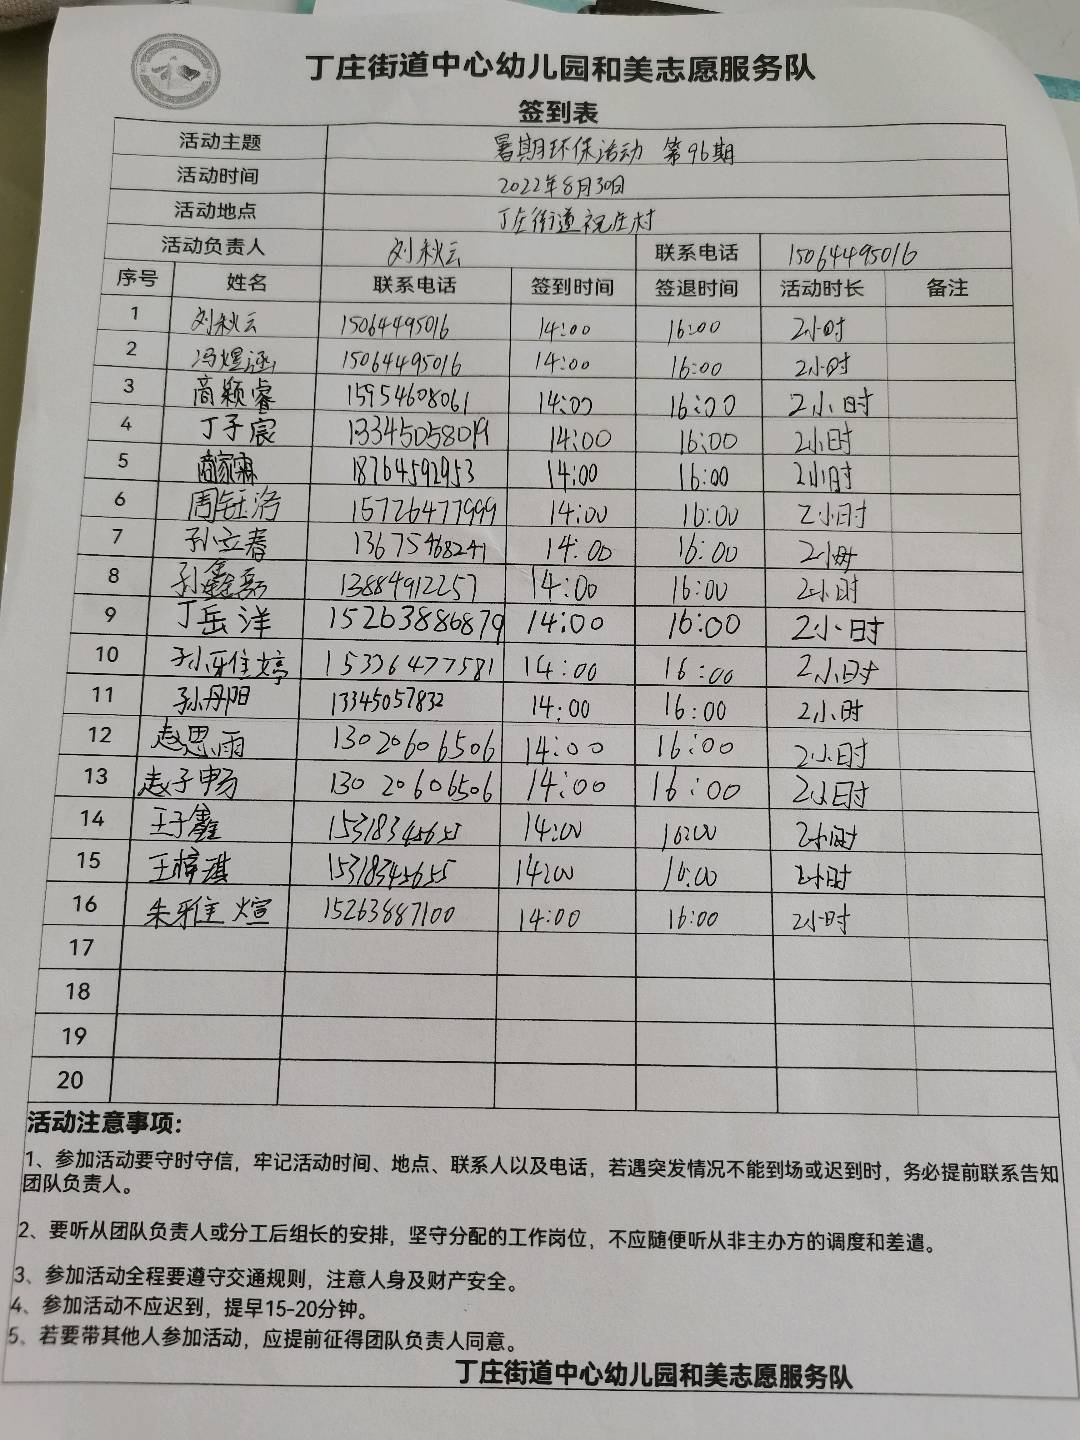 丁庄街道中心幼儿园和美志愿服务队
签到表
活动主题 暑期环保活动 第96期
活动时间 2022年8月30日
活动地点 丁庄街道祝庄村
活动负责人 刘秋云 联系电话 15064495016
序号 姓名 联系电话 签到时间 签退时间 活动时长 备注
1 刘秋云 15064495016 14:00 16:00 2小时
2 冯煜涵 15064495016 14:00 16:00 2小时
3 商颖睿 15954608061 14:00 16:00 2小时
4 丁子宸 13345058019 14:00 16:00 2小时
5 商家霖 18764592953 14:00 16:00 2小时
6 周钰洛 15726477999 14:00 16:00 2小时
7 孙立春 13675468241 14:00 16:00 2小时
8 孙鑫 13884912257 14:00 16:00 2小时
9 丁岳洋 15263886879 14:00 16:00 2小时
10 孙雅婷 15336477581 14:00 16:00 2小时
11 孙丹阳 13345057832 14:00 16:00 2小时
12 赵思雨 13020606506 14:00 16:00 2小时
13 赵子畅 13020606506 14:00 16:00 2小时
14 王子鑫 15318345655 14:00 16:00 2小时
15 王梓琪 15318345655 14:00 16:00 2小时
16 朱雅煊 15263887100 14:00 16:00 2小时
17
18
19
20
活动注意事项：
1、参加活动要守时守信，牢记活动时间、地点、联系人以及电话，若遇突发情况不能到场或迟到时，务必提前联系告知
团队负责人。
2、要听从团队负责人或分工后组长的安排，坚守分配的工作岗位，不应随便听从非主办方的调度和差遣。
3、参加活动全程要遵守交通规则，注意人身及财产安全。
4、参加活动不应迟到，提早15-20分钟。
5、若要带其他人参加活动，应提前征得团队负责人同意。
丁庄街道中心幼儿园和美志愿服务队